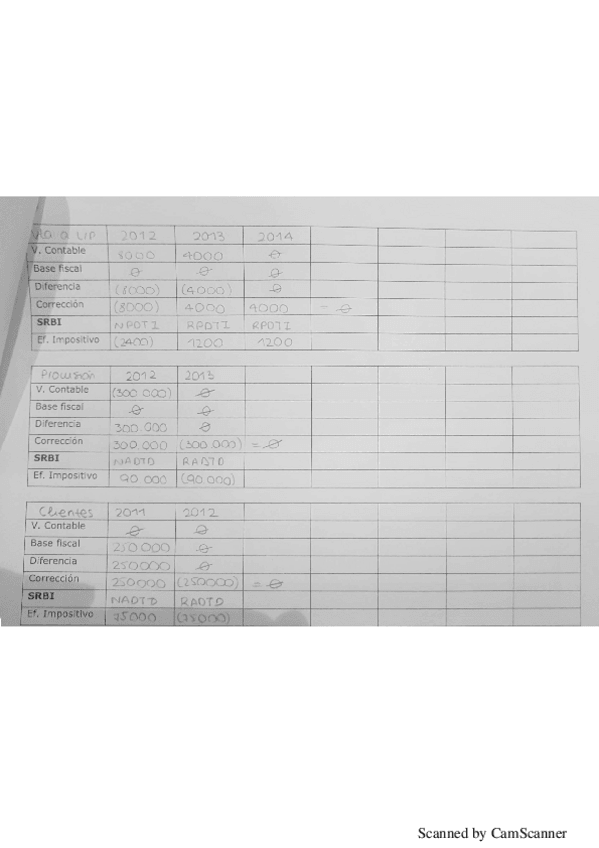 Vto a L/P 2012 2013 2014
V. Contable 8000 4000 ∅
Base fiscal ∅ ∅ ∅
Diferencia (8000) (4000) ∅
Corrección (8000) 4000 4000 = ∅
SRBI NPDTI RPDTI RPDTI
Ef. Impositivo (2400) 1200 1200
Provisión 2012 2013
V. Contable (300.000) ∅
Base fiscal ∅ ∅
Diferencia 300.000 ∅
Corrección 300.000 (300.000) = ∅
SRBI NADTD RADTD
Ef. Impositivo 90.000 (90.000)
Clientes 2011 2012
V. Contable ∅ ∅
Base fiscal 250000 ∅
Diferencia 250000 ∅
Corrección 250000 (250000) = ∅
SRBI NADTD RADTD
Ef. Impositivo 75000 (75000)
Scanned by CamScanner